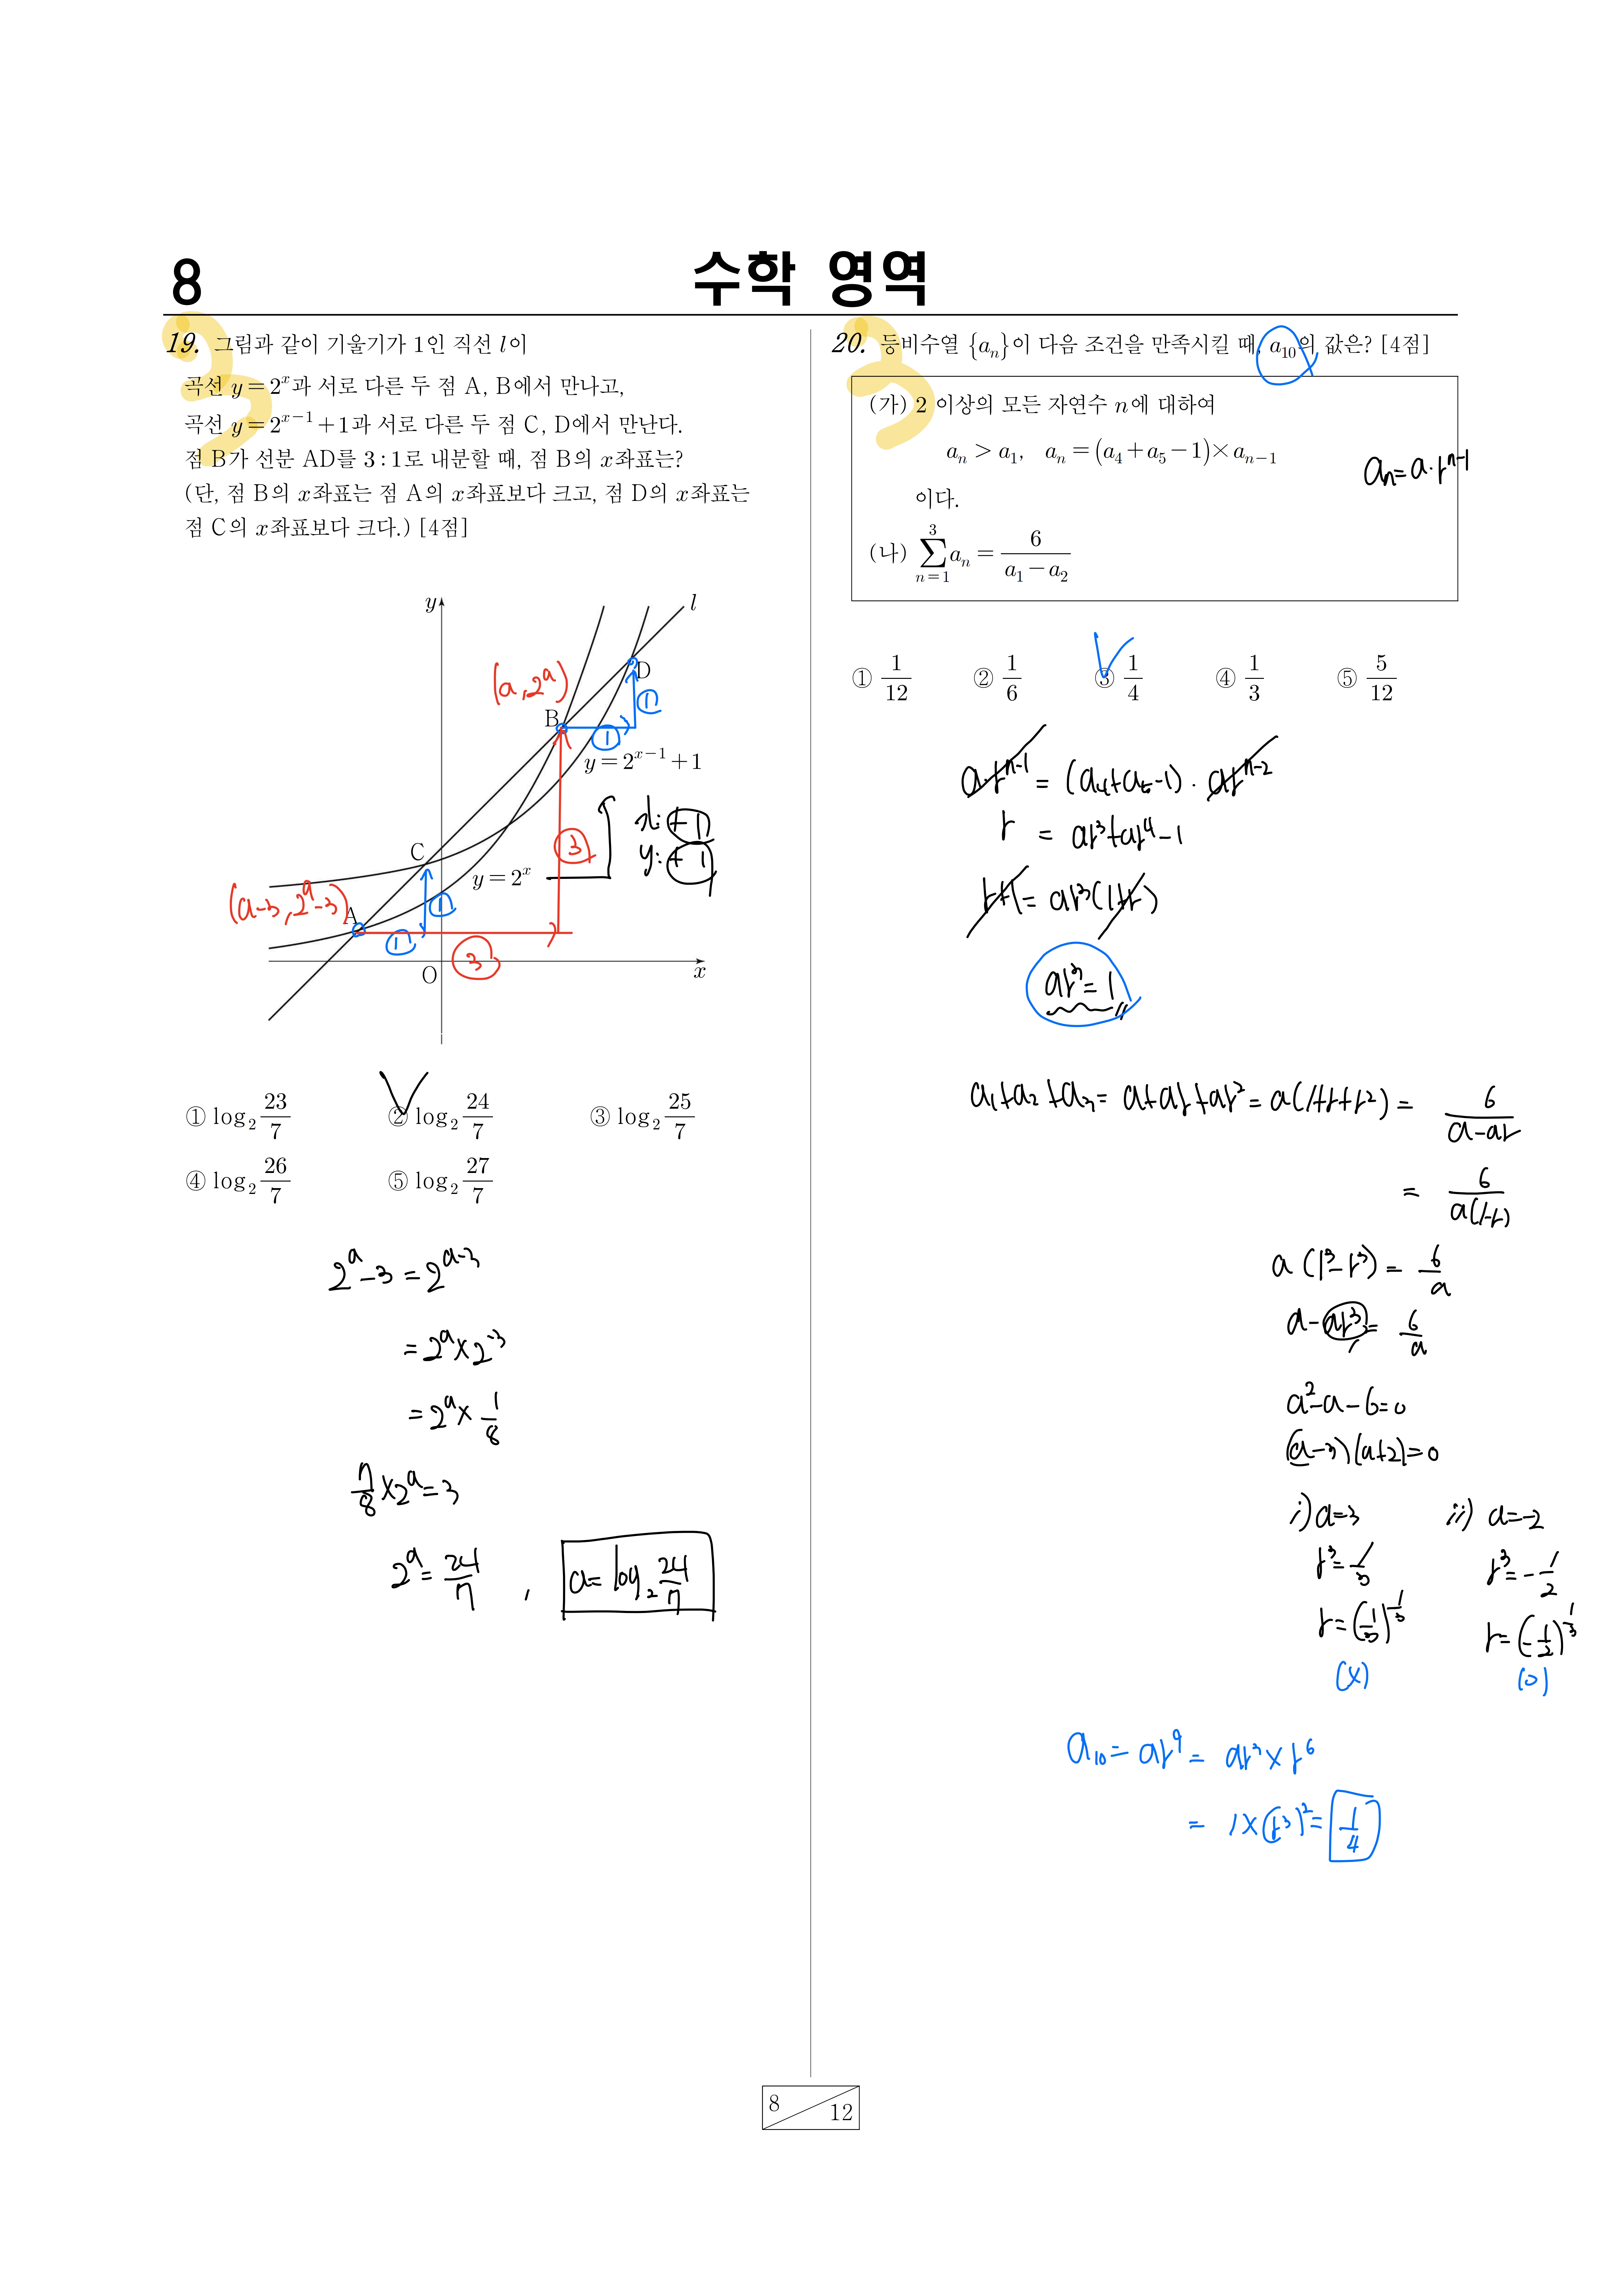 8
수학 영역
19. 그림과 같이 기울기가 1인 직선 l이
곡선 y=2^x과 서로 다른 두 점 A, B에서 만나고,
곡선 y=2^{x-1}+1과 서로 다른 두 점 C, D에서 만난다.
점 B가 선분 AD를 3:1로 내분할 때, 점 B의 x좌표는?
(단, 점 B의 x좌표는 점 A의 x좌표보다 크고, 점 D의 x좌표는
점 C의 x좌표보다 크다.) [4점]
y
l
(a, 2^a)
D
B
①
①
y=2^{x-1}+1
x: +1
y: +1
③
C
y=2^x
(a-3, 2^a-3)
A
①
①
O
③
x
① log_2 23/7 ② log_2 24/7 ③ log_2 25/7
④ log_2 26/7 ⑤ log_2 27/7
2^a-3=2^{a-3}
=2^a×2^{-3}
=2^a×1/8
7/8×2^a=3
2^a=24/7, a=log_2 24/7
20. 등비수열 {a_n}이 다음 조건을 만족시킬 때, a_10의 값은? [4점]
(가) 2 이상의 모든 자연수 n에 대하여
a_n>a_1, a_n=(a_4+a_5-1)×a_{n-1}
이다.
a_n=a·r^{n-1}
(나) ∑_{n=1}^{3} a_n = 6/(a_1-a_2)
① 1/12 ② 1/6 ③ 1/4 ④ 1/3 ⑤ 5/12
a·r^{n-1}=(a_4+a_5-1)·ar^{n-2}
r=ar^3+ar^4-1
r+1=ar^3(1+r)
ar^3=1
a_1+a_2+a_3=a+ar+ar^2=a(1+r+r^2)=6/(a-ar)
=6/(a(1-r))
a(1^3-r^3)=6/a
a-ar^3=6/a
a^2-a-6=0
(a-3)(a+2)=0
i) a=3 ii) a=-2
r^3=1/3 r^3=-1/2
r=(1/3)^{1/3} r=(-1/2)^{1/3}
(X) (O)
a_10=ar^9=ar^3×r^6
=1×(r^3)^2=1/4
8
12